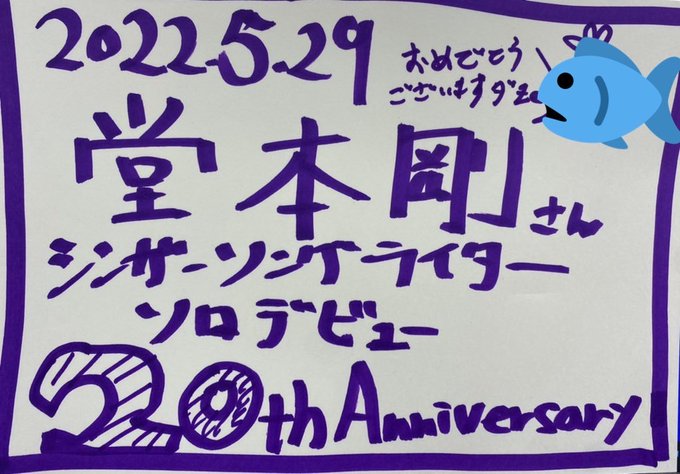 2022.5.29
おめでとう
ございますダヨ
堂本剛さん
シンガーソングライター
ソロデビュー
20th Anniversary